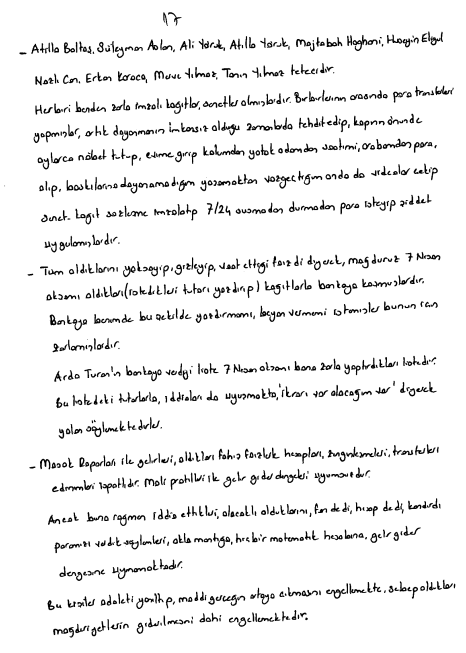 17
- Atilla Baltaş, Süleyman Aslan, Ali Yörük, Atilla Yörük, Mojtabah Haghani, Hüseyin Eligül
Nazlı Can, Erkan Karaca, Merve Yılmaz, Tanin Yılmaz tefecidir.
Herbiri benden zorla imzalı kağıtlar, senetler almışlardır. Birbirlerinin arasında para transferleri
yapmışlar, artık dayanmanın imkansız olduğu zamanlarda tehdit edip, kapının önünde
aylarca nöbet tutup, evime girip kolumdan yatak odamdan saatimi, arabamdan para,
alıp, baskılarına dayanamadığım yaşamaktan vazgeçtiğim anda da videolar çekip
senet, kağıt sözleşme imzalatıp 7/24 susmadan durmadan para isteyip şiddet
uygulamışlardır.
- Tüm aldıklarını yoksayıp, gizleyip, vaat ettiği faizdi diyerek, mağduruz 7 Nisan
akşamı aldıkları (istedikleri tutarı yazdırıp) kağıtlarla bankaya koşmuşlardır.
Bankaya benimde bu şekilde yazdırmamı, beyan vermemi istemişler bunun için
zorlamışlardır.
Arda Turan'ın bankaya verdiği liste 7 Nisan akşamı bana zorla yaptırdıkları listedir.
Bu listedeki tutarlarla, iddiaları da uyuşmakta, 'ikrarı var alacağım var' diyerek
yalan söylemektedirler.
- Masak Raporları ile gelirleri, aldıkları fahiş faizlik hesapları, zenginleşmeleri, transferleri
edinimleri ispatlıdır. Mali profilleri ile gelir gider dengeleri uyumsuzdur.
Ancak buna rağmen iddia ettikleri, alacaklı olduklarını, fon dedi, hisap dedi, kandırdı
paramızı verdik söylemleri, akla mantığa, hiçbir matematik hesabına, gelir gider
dengesine uymamaktadır.
Bu kişiler adaleti yanıltıp, maddi gerçeğin ortaya çıkmasını engellemekte, sebep oldukları
mağduriyetlerin giderilmesini dahi engellemektedir.